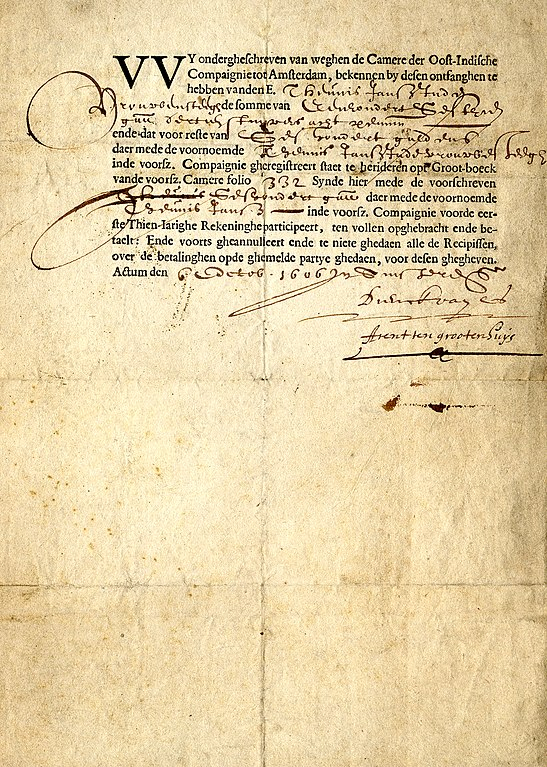 VVY ondergheschreven van weghen de Camere der Oost-Indische
Compaignie tot Amsterdam, bekennen by desen ontfanghen te
hebben vanden E. Theunis Jansz Inde
de somme van
stuyvers acht penn
ende dat voor reste van Ses hondert guldens
daer mede de voornoemde Theunis Jansz
inde voorsz. Compaignie gheregistreert staet te herideren opt Groot-boeck
vande voorsz. Camere folio 332 Synde hier mede de voorschreven
Seshondert daer mede de voornoemde
Theunis Jansz inde voorsz. Compaignie voorde eer-
ste Thien-Iarighe Rekeninghe participeert, ten vollen opghebracht ende be-
taelt: Ende voorts gheannulleert ende te niere ghedaen alle de Recipissen,
over de betalinghen opde ghemelde partye ghedaen, voor desen ghegheven.
Actum den Octob. 1606
Arent ten grootenhuys